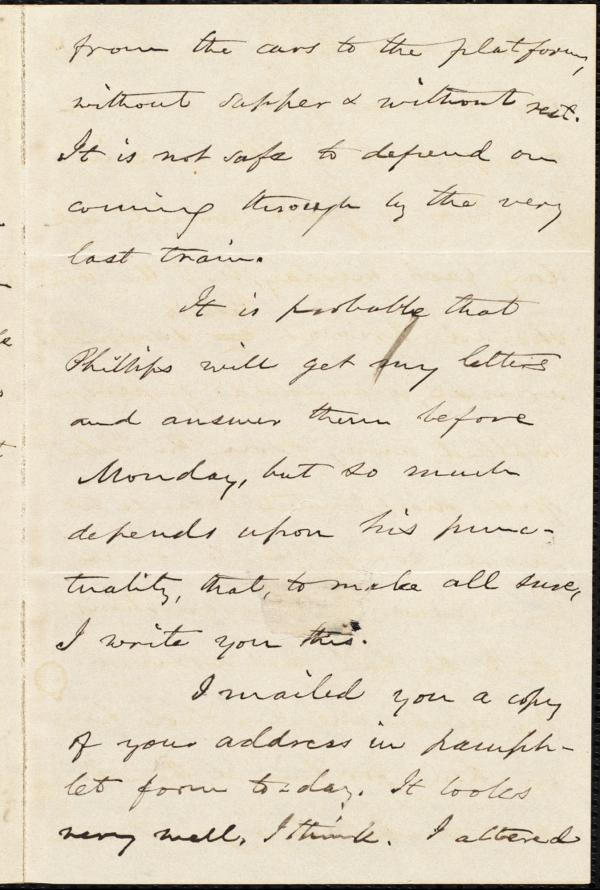 from the cars to the platform,
without supper & without rest.
It is not safe to depend on
coming through by the very
last train.
It is probable that
Phillips will get my letters
and answer them before
Monday, but so much
depends upon his punc-
tuality, that, to make all sure,
I write you this.
I mailed you a copy
of your address in pamph-
let form to-day. It looks
very well, I think. I altered